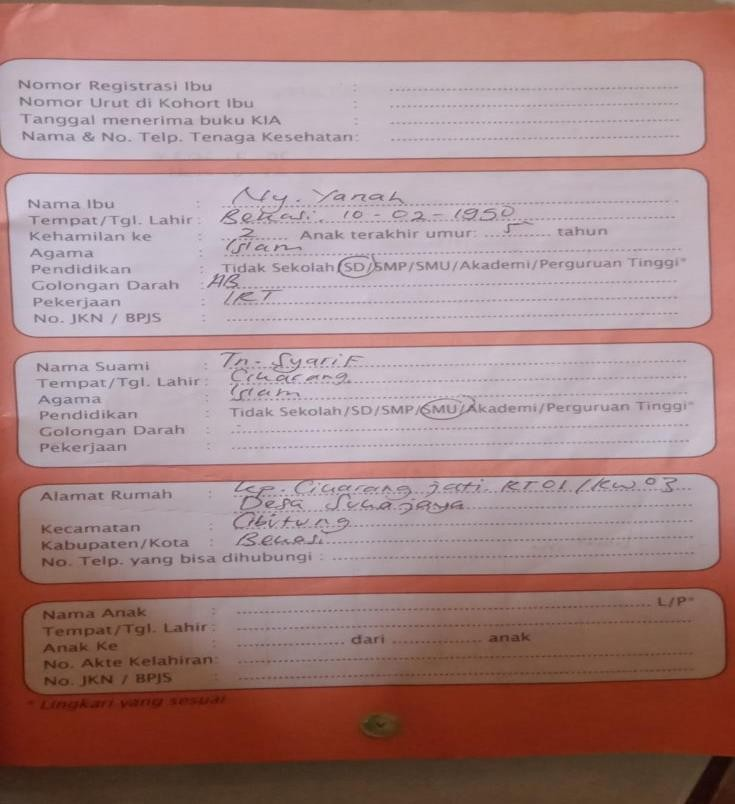 Nomor Registrasi Ibu :
Nomor Urut di Kohort Ibu :
Tanggal menerima buku KIA :
Nama & No. Telp. Tenaga Kesehatan:
Nama Ibu : Ny. Yanah
Tempat/Tgl. Lahir : Bekasi. 10-02-1950
Kehamilan ke : 2 Anak terakhir umur: 5 tahun
Agama : Islam
Pendidikan : Tidak Sekolah/SD/SMP/SMU/Akademi/Perguruan Tinggi*
Golongan Darah : AB
Pekerjaan : IRT
No. JKN / BPJS :
Nama Suami : Tn. Syarif
Tempat/Tgl. Lahir : Cikarang
Agama : Islam
Pendidikan : Tidak Sekolah/SD/SMP/SMU/Akademi/Perguruan Tinggi*
Golongan Darah :
Pekerjaan :
Alamat Rumah : kp. Cikarang jati. RT01/RW03
Desa Sukajaya
Kecamatan : Cibitung
Kabupaten/Kota : Bekasi
No. Telp. yang bisa dihubungi :
Nama Anak : L/P*
Tempat/Tgl. Lahir :
Anak Ke : dari anak
No. Akte Kelahiran:
No. JKN / BPJS :
* Lingkari yang sesuai